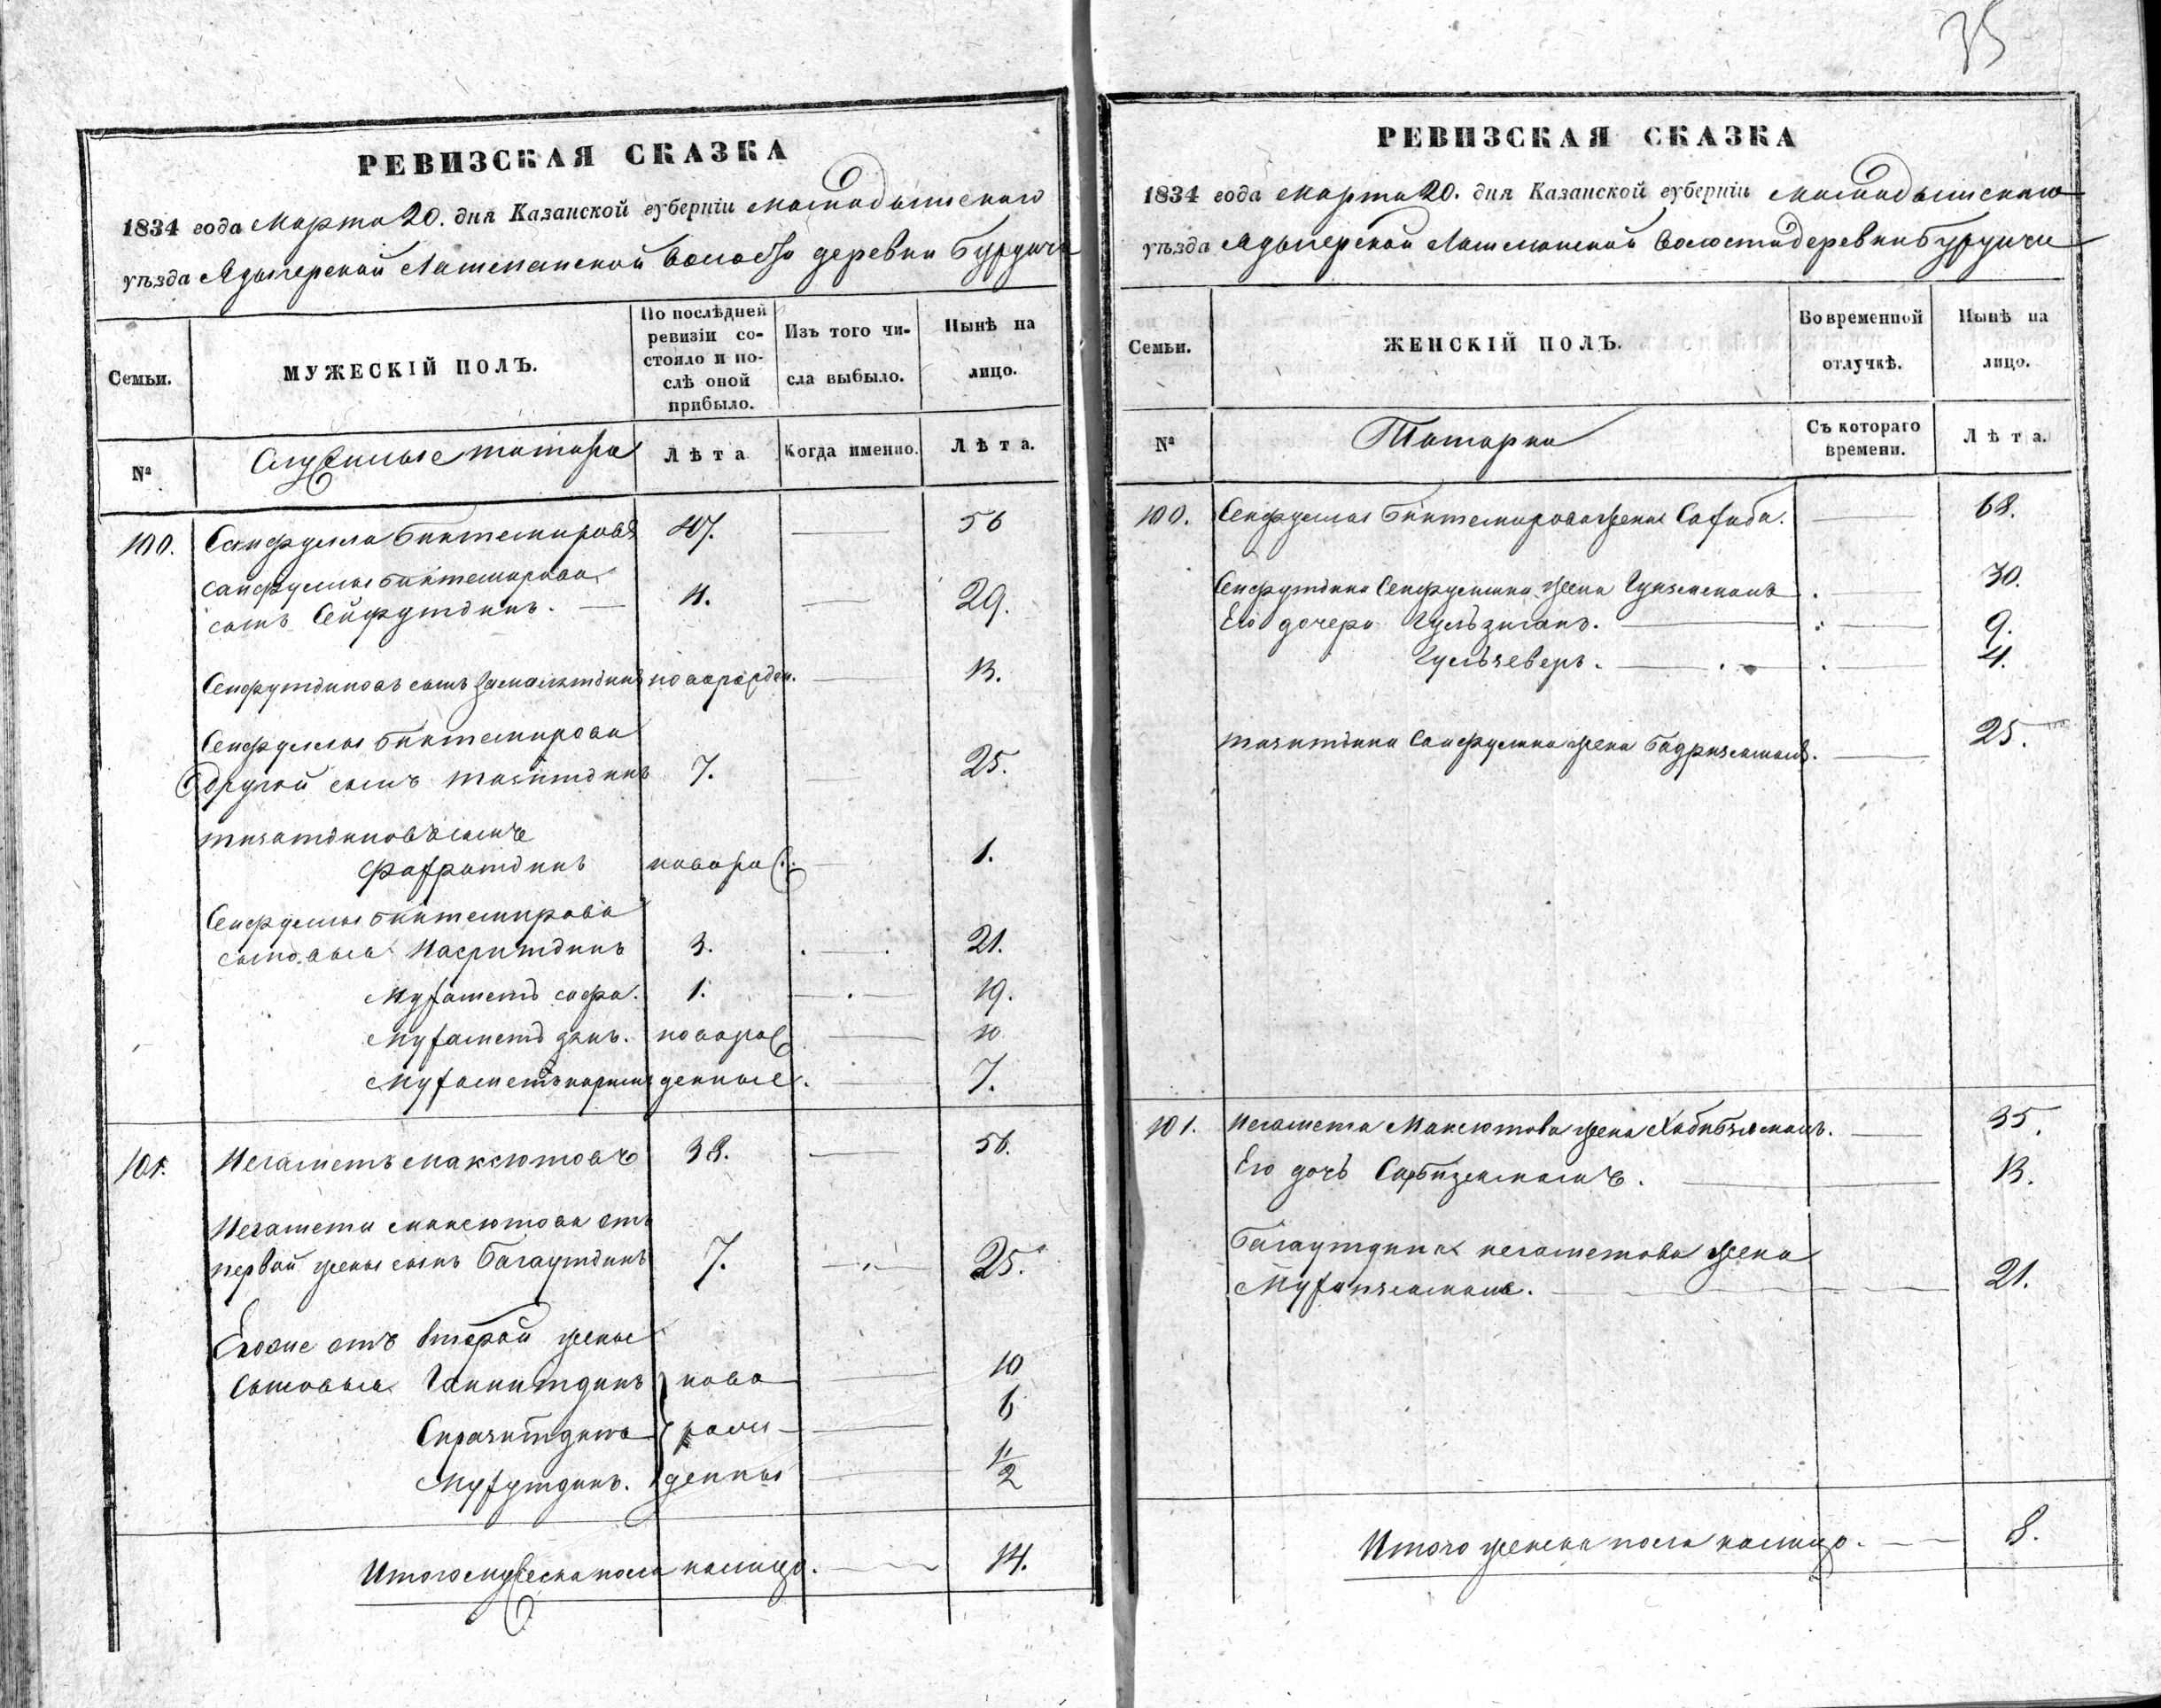 35
РЕВИЗСКАЯ СКАЗКА
1834 года Марта 20. дня Казанской губерніи Мамадышскаго
уѣзда Адагерской Лашманской волости деревни Бурдучи
Семьи.
МУЖЕСКІЙ ПОЛЪ.
По послѣдней ревизіи состояло и послѣ оной прибыло.
Изъ того числа выбыло.
Нынѣ на лицо.
№
Служилые татара
Лѣта
Когда именно.
Лѣта.
100. Сайфулла Биктемировъ 47. 56
Сайфуллы Биктемирова
сынъ Сейфутдинъ. 11. 29.
Сейфутдиновъ сынъ новорожден. 13.
Сейфуллы Биктемирова
другой сынъ Тазитдинъ 7. 25.
Тазитдиновъ сынъ
Фахратдинъ новорож. 1.
Сейфуллы Биктемирова
сыновья Насритдинъ 3. 21.
Мухаметъ сафа. 1. 19.
Мухаметъ новорож 10
Мухаметъ карим денные. 7.
101. Негаметъ Максютовъ 38. 56.
Негамета Максютова отъ
первой жены сынъ Багаутдинъ 7. 25.
Егоже отъ второй жены
сыновья Гайнитдинъ ново 10
Сиразитдинъ рож 6
Мухутдинъ. денны 1/2
Итого мужеска пола налицо. 14.
РЕВИЗСКАЯ СКАЗКА
1834 года Марта 20. дня Казанской губерніи Мамадышскаго
уѣзда Адагерской Лашманской волости деревни Бурдучи
Семьи.
ЖЕНСКІЙ ПОЛЪ.
Во временной отлучкѣ.
Нынѣ на лицо.
№
Татарки
Съ котораго времени.
Лѣта.
100. Сейфуллы Биктемирова жена Сахиба. 68.
Сейфутдина Сейфуллина жена 30.
Его дочери Гульзиганъ. 9.
Гульзеверъ. 4.
Тазитдина Сайфуллина жена Бадризямалъ. 25.
101. Негамета Максютова жена Хабибзямалъ. 35.
Его дочь Сарбиземалъ. 13.
Багаутдина Негаметова жена
Мухипзямала. 21.
Итого женска пола налицо. 8.